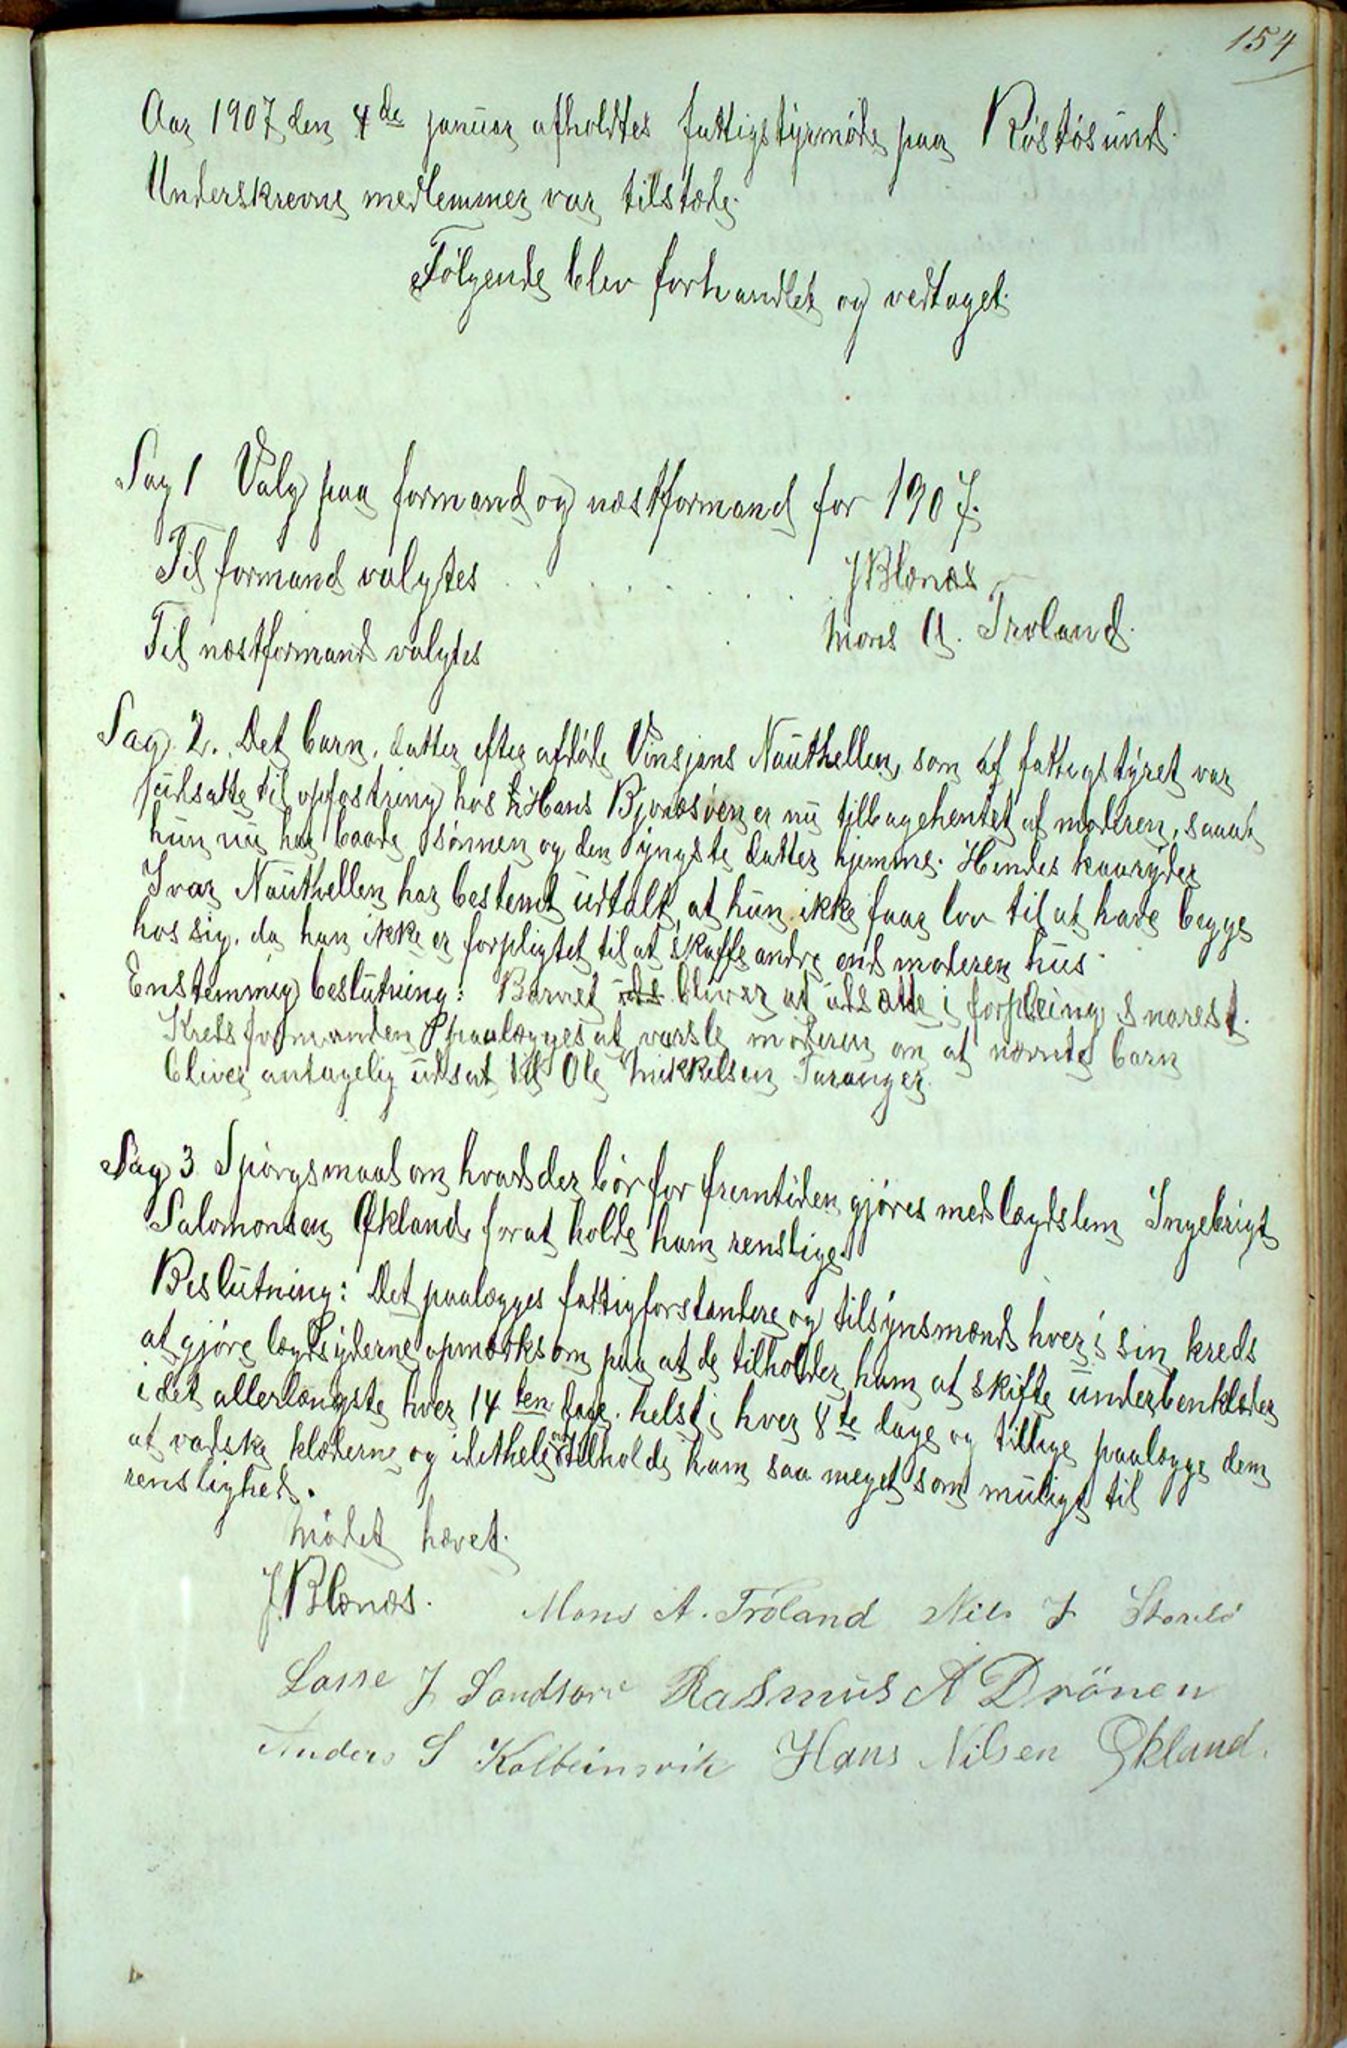 154
Aar 1907 den 4de januar afholdtes fattigstyrmøde paa Røstøsund.
Underskrevne medlemmer var tilstæde.
Følgende blev forhandlet og vedtaget.
Sag 1 Valg paa formand og næstformand for 1907.
Til formand valgtes . . . . . . J Blænæs
Til næstformand valgtes . . Mons A. Troland.
Sag 2. Det barn, datter efter afdøde Vinsjans Nauthellen, som af fattigstyret var
udsatte til opfostring hos Hans Bjonæsøen er nu tilbagehentet af moderen, saaat
hun nu har baade sønnen og den yngste datter hjemme. Hendes kaaryder
Ivar Nauthellen har bestemt udtalt, at hun ikke faar lov til at have begge
hos sig, da han ikke er forpligtet til at skaffe andre end moderen hus.
Enstemmig beslutning: Barnet uds bliver at udsætte i forpleing snarest.
Kredsformanden paalægges at varsle moderen om at nævnte barn
bliver antagelig udsat til Ole Mikkelsen Taranger.
Sag 3 Spørgsmaal om hvad der bør for fremtiden gjøres med lægdslem Ingebrigt
Salomonsen Økland for at holde ham renslige.
Beslutning: Det paalægges fattigforstandere og tilsynsmænd hver i sin kreds
at gjøre lægdsyderne opmærksom paa at de tilholder ham at skifte underbenklæder
i det allerlængste hver 14 ten dage. helst i hver 8te dage og tillige paalægge dem
at vadske klæderne og idethele at tilholde ham saa meget som muligt til
renslighed.
Mødet hævet.
J. Blænæs. Mons A. Troland Nils J Storebø
Lasse J Sandtorv Rasmus A Drönen
Anders S Kolbeinsvik Hans Nilsen Økland.